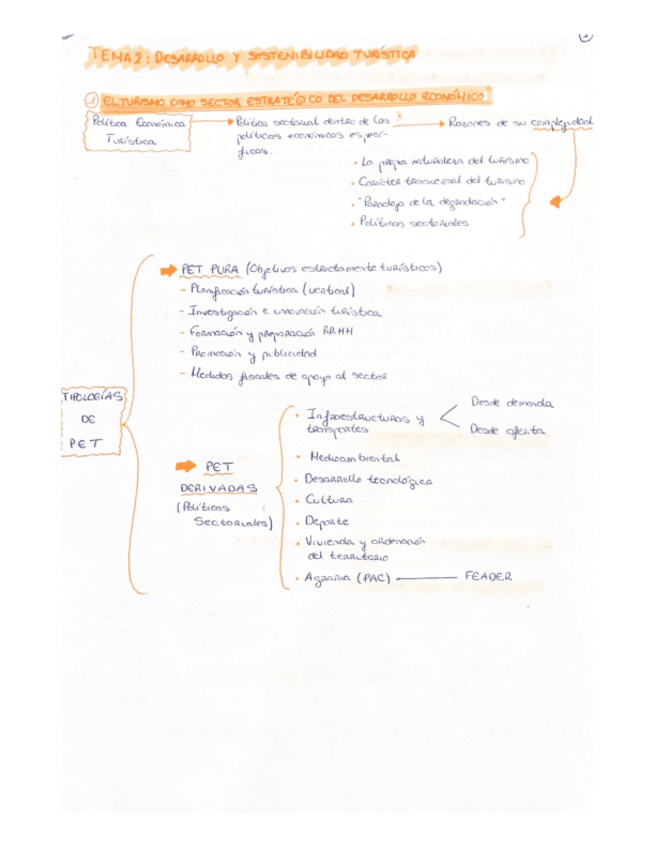 TEMA 2: DESARROLLO Y SOSTENIBILIDAD TURÍSTICA
1 EL TURISMO COMO SECTOR ESTRATÉGICO DEL DESARROLLO ECONÓMICO
Política Económica
Turística
Política sectorial dentro de las
políticas económicas especí-
ficas.
Razones de su complejidad
• La propia naturaleza del turismo
• Carácter transversal del turismo
• "Paradoja de la degradación"
• Políticas sectoriales
TIPOLOGÍAS
DE
PET
PET PURA (Objetivos estrictamente turísticos)
- Planificación turística (vertical)
- Investigación e innovación turística
- Formación y preparación RRHH
- Promoción y publicidad
- Medidas fiscales de apoyo al sector
PET
DERIVADAS
(Políticas
Sectoriales)
• Infraestructuras y
transportes
Desde demanda
Desde oferta
• Medioambiental
• Desarrollo tecnológica
• Cultura
• Deporte
• Vivienda y ordenación
del territorio
• Agraria (PAC) — FEADER